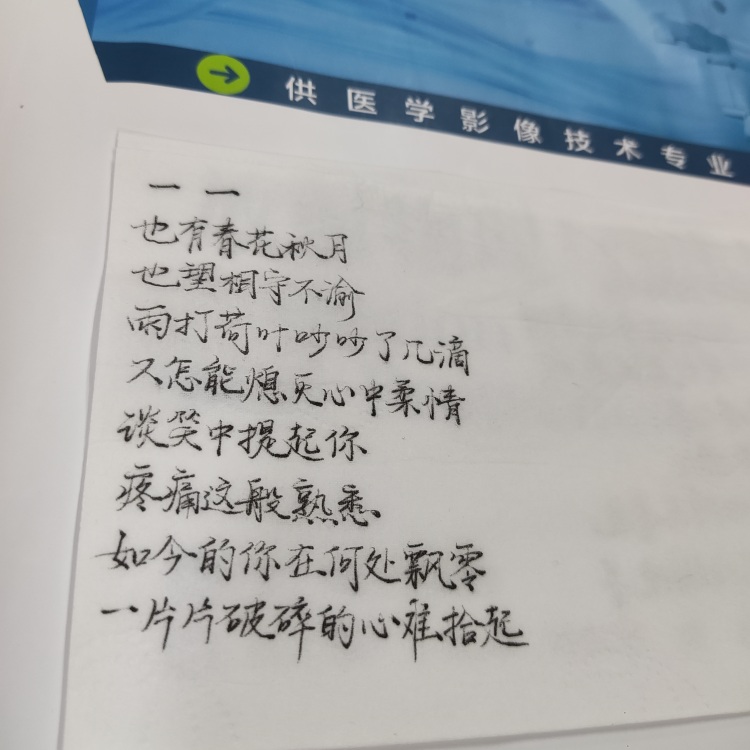 供医学影像技术专业
一一
也有春花秋月
也望相守不渝
雨打荷叶吵吵了几滴
又怎能熄灭心中柔情
谈笑中提起你
疼痛这般熟悉
如今的你在何处飘零
一片片破碎的心难拾起